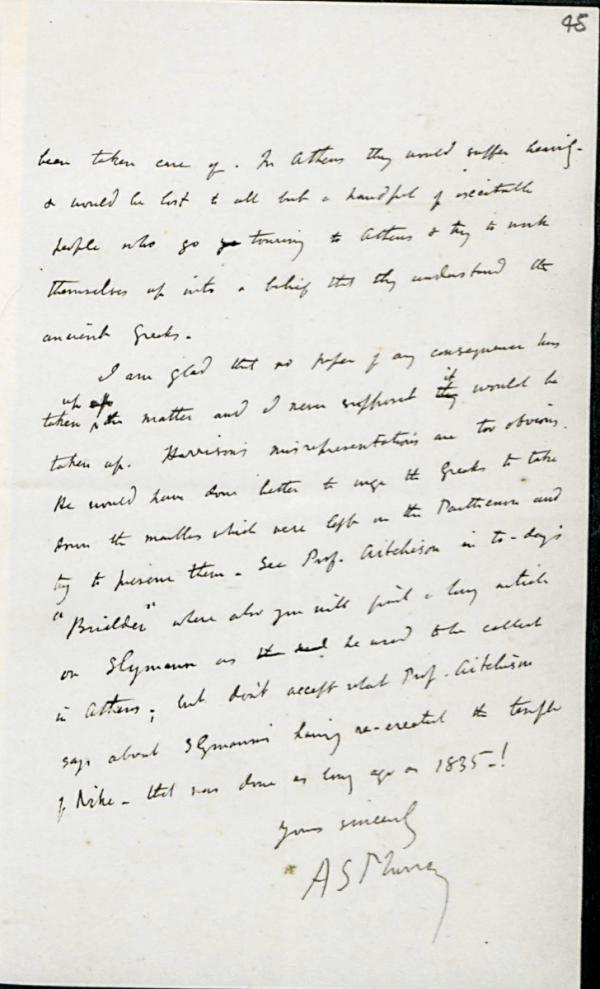 45
been taken care of. In Athens they would suffer heavily
& would be lost to all but a handful of excitable
people who go touring to Athens & try to work
themselves up into a belief that they understand the
ancient Greeks.
I am glad that no paper of any consequence has
taken up the matter and I never supposed it would be
taken up. Harrison's misrepresentations are too obvious.
He would have done better to urge the Greeks to take
down the marbles which were left on the Parthenon and
try to preserve them. See Prof. Aitchison in to-day's
"Builder" where also you will find a long article
on Slymann as he used to be called
in Athens; but don't accept what Prof. Aitchison
says about Slymann's having re-erected the temple
of Nike - that was done as long ago as 1835-!
Yours sincerely
A S Murray